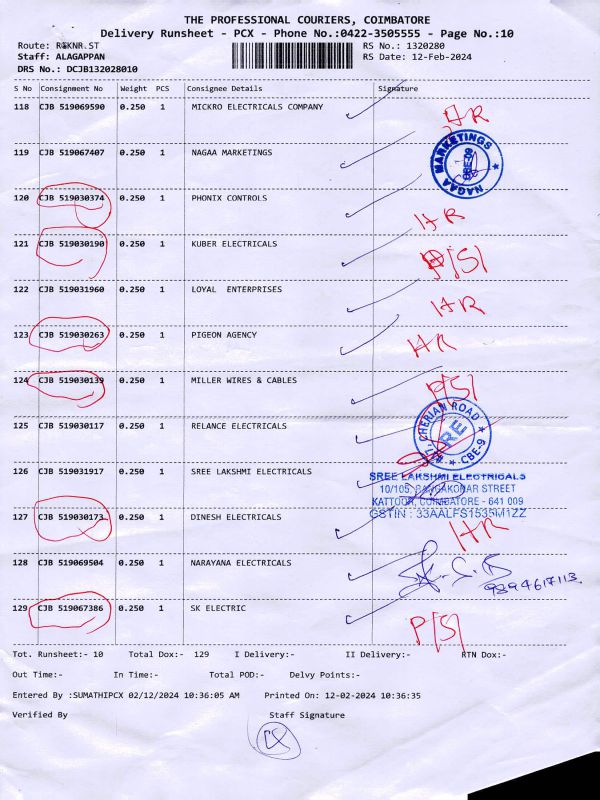 THE PROFESSIONAL COURIERS, COIMBATORE
Delivery Runsheet - PCX - Phone No.:0422-3505555 - Page No.:10
Route: RGKNR.ST RS No.: 1320280
Staff: ALAGAPPAN RS Date: 12-Feb-2024
DRS No.: DCJB132028010
S No Consignment No Weight PCS Consignee Details Signature
118 CJB 519069590 0.250 1 MICKRO ELECTRICALS COMPANY HR
119 CJB 519067407 0.250 1 NAGAA MARKETINGS NAGAA MARKETINGS CBE-9
120 CJB 519030374 0.250 1 PHONIX CONTROLS HR
121 CJB 519030190 0.250 1 KUBER ELECTRICALS P/S/
122 CJB 519031960 0.250 1 LOYAL ENTERPRISES HR
123 CJB 519030263 0.250 1 PIGEON AGENCY HR
124 CJB 519030139 0.250 1 MILLER WIRES & CABLES P/S/
125 CJB 519030117 0.250 1 RELANCE ELECTRICALS CHERIAN ROAD CBE-9
126 CJB 519031917 0.250 1 SREE LAKSHMI ELECTRICALS SREE LAKSHMI ELECTRICALS
10/105, RANGAKONAR STREET
KATTOOR, COIMBATORE - 641 009
GSTIN : 33AALFS1535M1ZZ
127 CJB 519030173 0.250 1 DINESH ELECTRICALS HR
128 CJB 519069504 0.250 1 NARAYANA ELECTRICALS 9894617113
129 CJB 519067386 0.250 1 SK ELECTRIC P/S/
Tot. Runsheet:- 10 Total Dox:- 129 I Delivery:- II Delivery:- RTN Dox:-
Out Time:- In Time:- Total POD:- Delvy Points:-
Entered By :SUMATHIPCX 02/12/2024 10:36:05 AM Printed On: 12-02-2024 10:36:35
Verified By Staff Signature